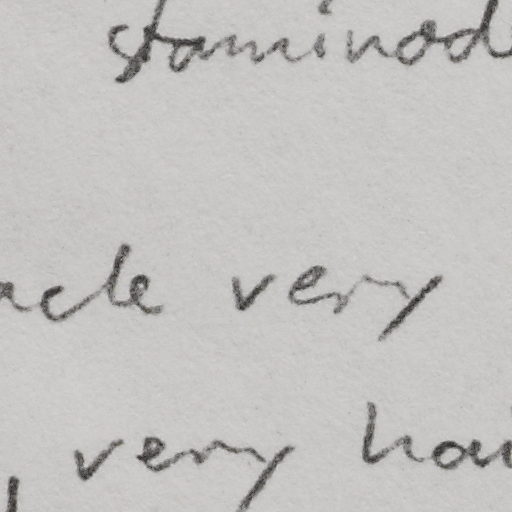 staminod
acle very
, very hai